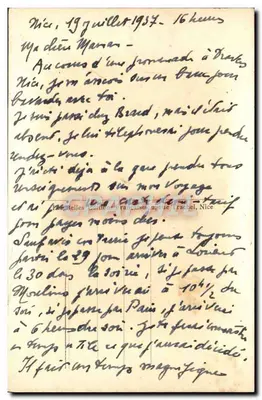 Nice, 19 juillet 1937 - 16 heures
Ma chère Maman -
Au cours d'une promenade à travers
Nice, je m'assois sur un banc pour
bavarder avec toi.
Je suis passé chez Braud, mais il était
absent. Je lui téléphonerai pour prendre
rendez-vous.
J'ai été déjà à la gare prendre tous
renseignements sur mon voyage
Nice.
pour
je pense toujours
partir le 29 pour arriver à Lorient
le 30 dans la soirée, si je passe par
Moulins j'arriverai à 10h1/2 du
soir, si je passe par Paris, j'arriverai
à 6 heures du soir. Je te ferai connaître
en temps utile ce que j'aurai décidé.
Il fait un temps magnifique